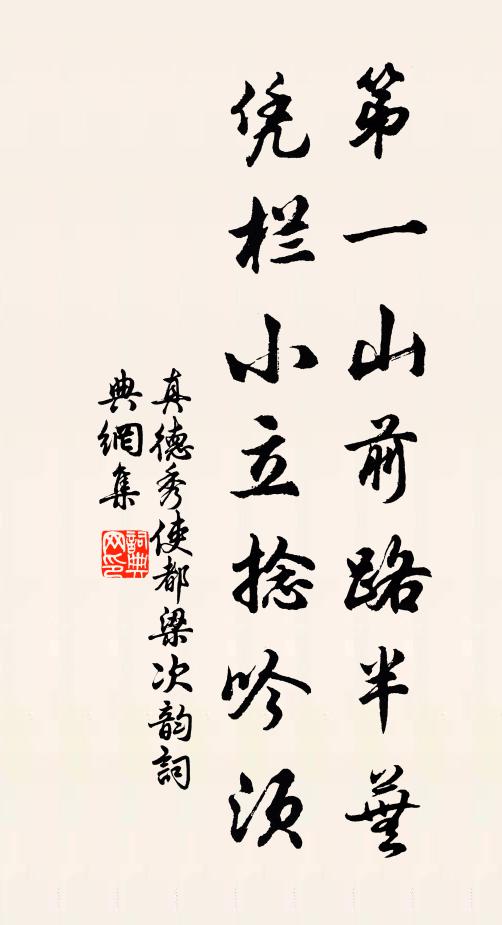 第一山前路半蕪
凭栏小立捻吟须
真德秀使都梁次韵詞
典網集
詞典
网印